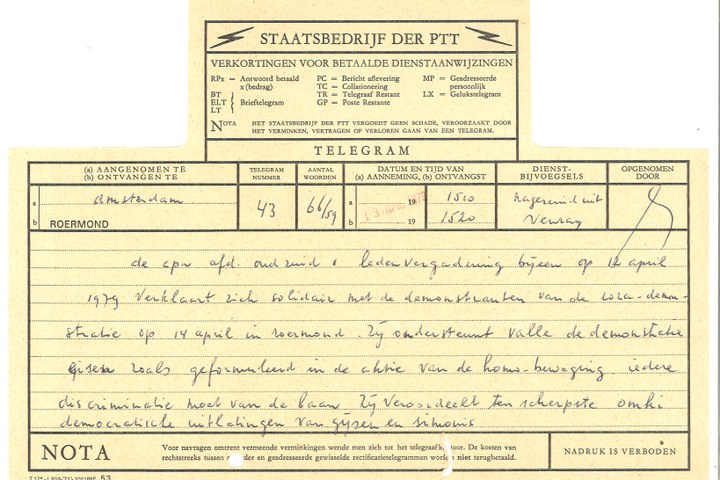 STAATSBEDRIJF DER PTT
VERKORTINGEN VOOR BETAALDE DIENSTAANWIJZINGEN
RPx = Antwoord betaald x (bedrag)
BT
ELT
LT
Brieftelegram
PC = Bericht aflevering
TC = Collationering
TR = Telegraaf Restant
GP = Poste Restante
MP = Geadresseerde persoonlijk
LX = Gelukstelegram
NOTA HET STAATSBEDRIJF DER PTT VERGOEDT GEEN SCHADE, VEROORZAAKT DOOR
HET VERMINKEN, VERTRAGEN OF VERLOREN GAAN VAN EEN TELEGRAM.
TELEGRAM
(a) AANGENOMEN TE
(b) ONTVANGEN TE
TELEGRAM NUMMER
AANTAL WOORDEN
DATUM EN TIJD VAN
(a) AANNEMING, (b) ONTVANGST
DIENST-BIJVOEGSELS
OPGENOMEN DOOR
a amsterdam
b ROERMOND
43
66/59
a 19 1510
b 19 1520
nagezend uit
Venray
de cpn afd. oud zuid ledenvergadering bijeen op 12 april
1979 verklaart zich solidair met de demonstranten van de roza-demon-
stratie op 14 april in roermond. Zij ondersteunt valle de demonstratie
eisen zoals geformuleerd in de aktie van de homo-beweging. iedere
discriminatie moet van de baan. Zij veroordeelt ten scherpste omki
democratische uitlatingen van gijsen en simonis
NOTA
Voor navragen omtrent vermeende verminkingen wende men zich tot het telegraafkantoor. De kosten van
rechtstreeks tussen en geadresseerde gewisselde rectificatietelegrammen worden niet terugbetaald.
NADRUK IS VERBODEN
53